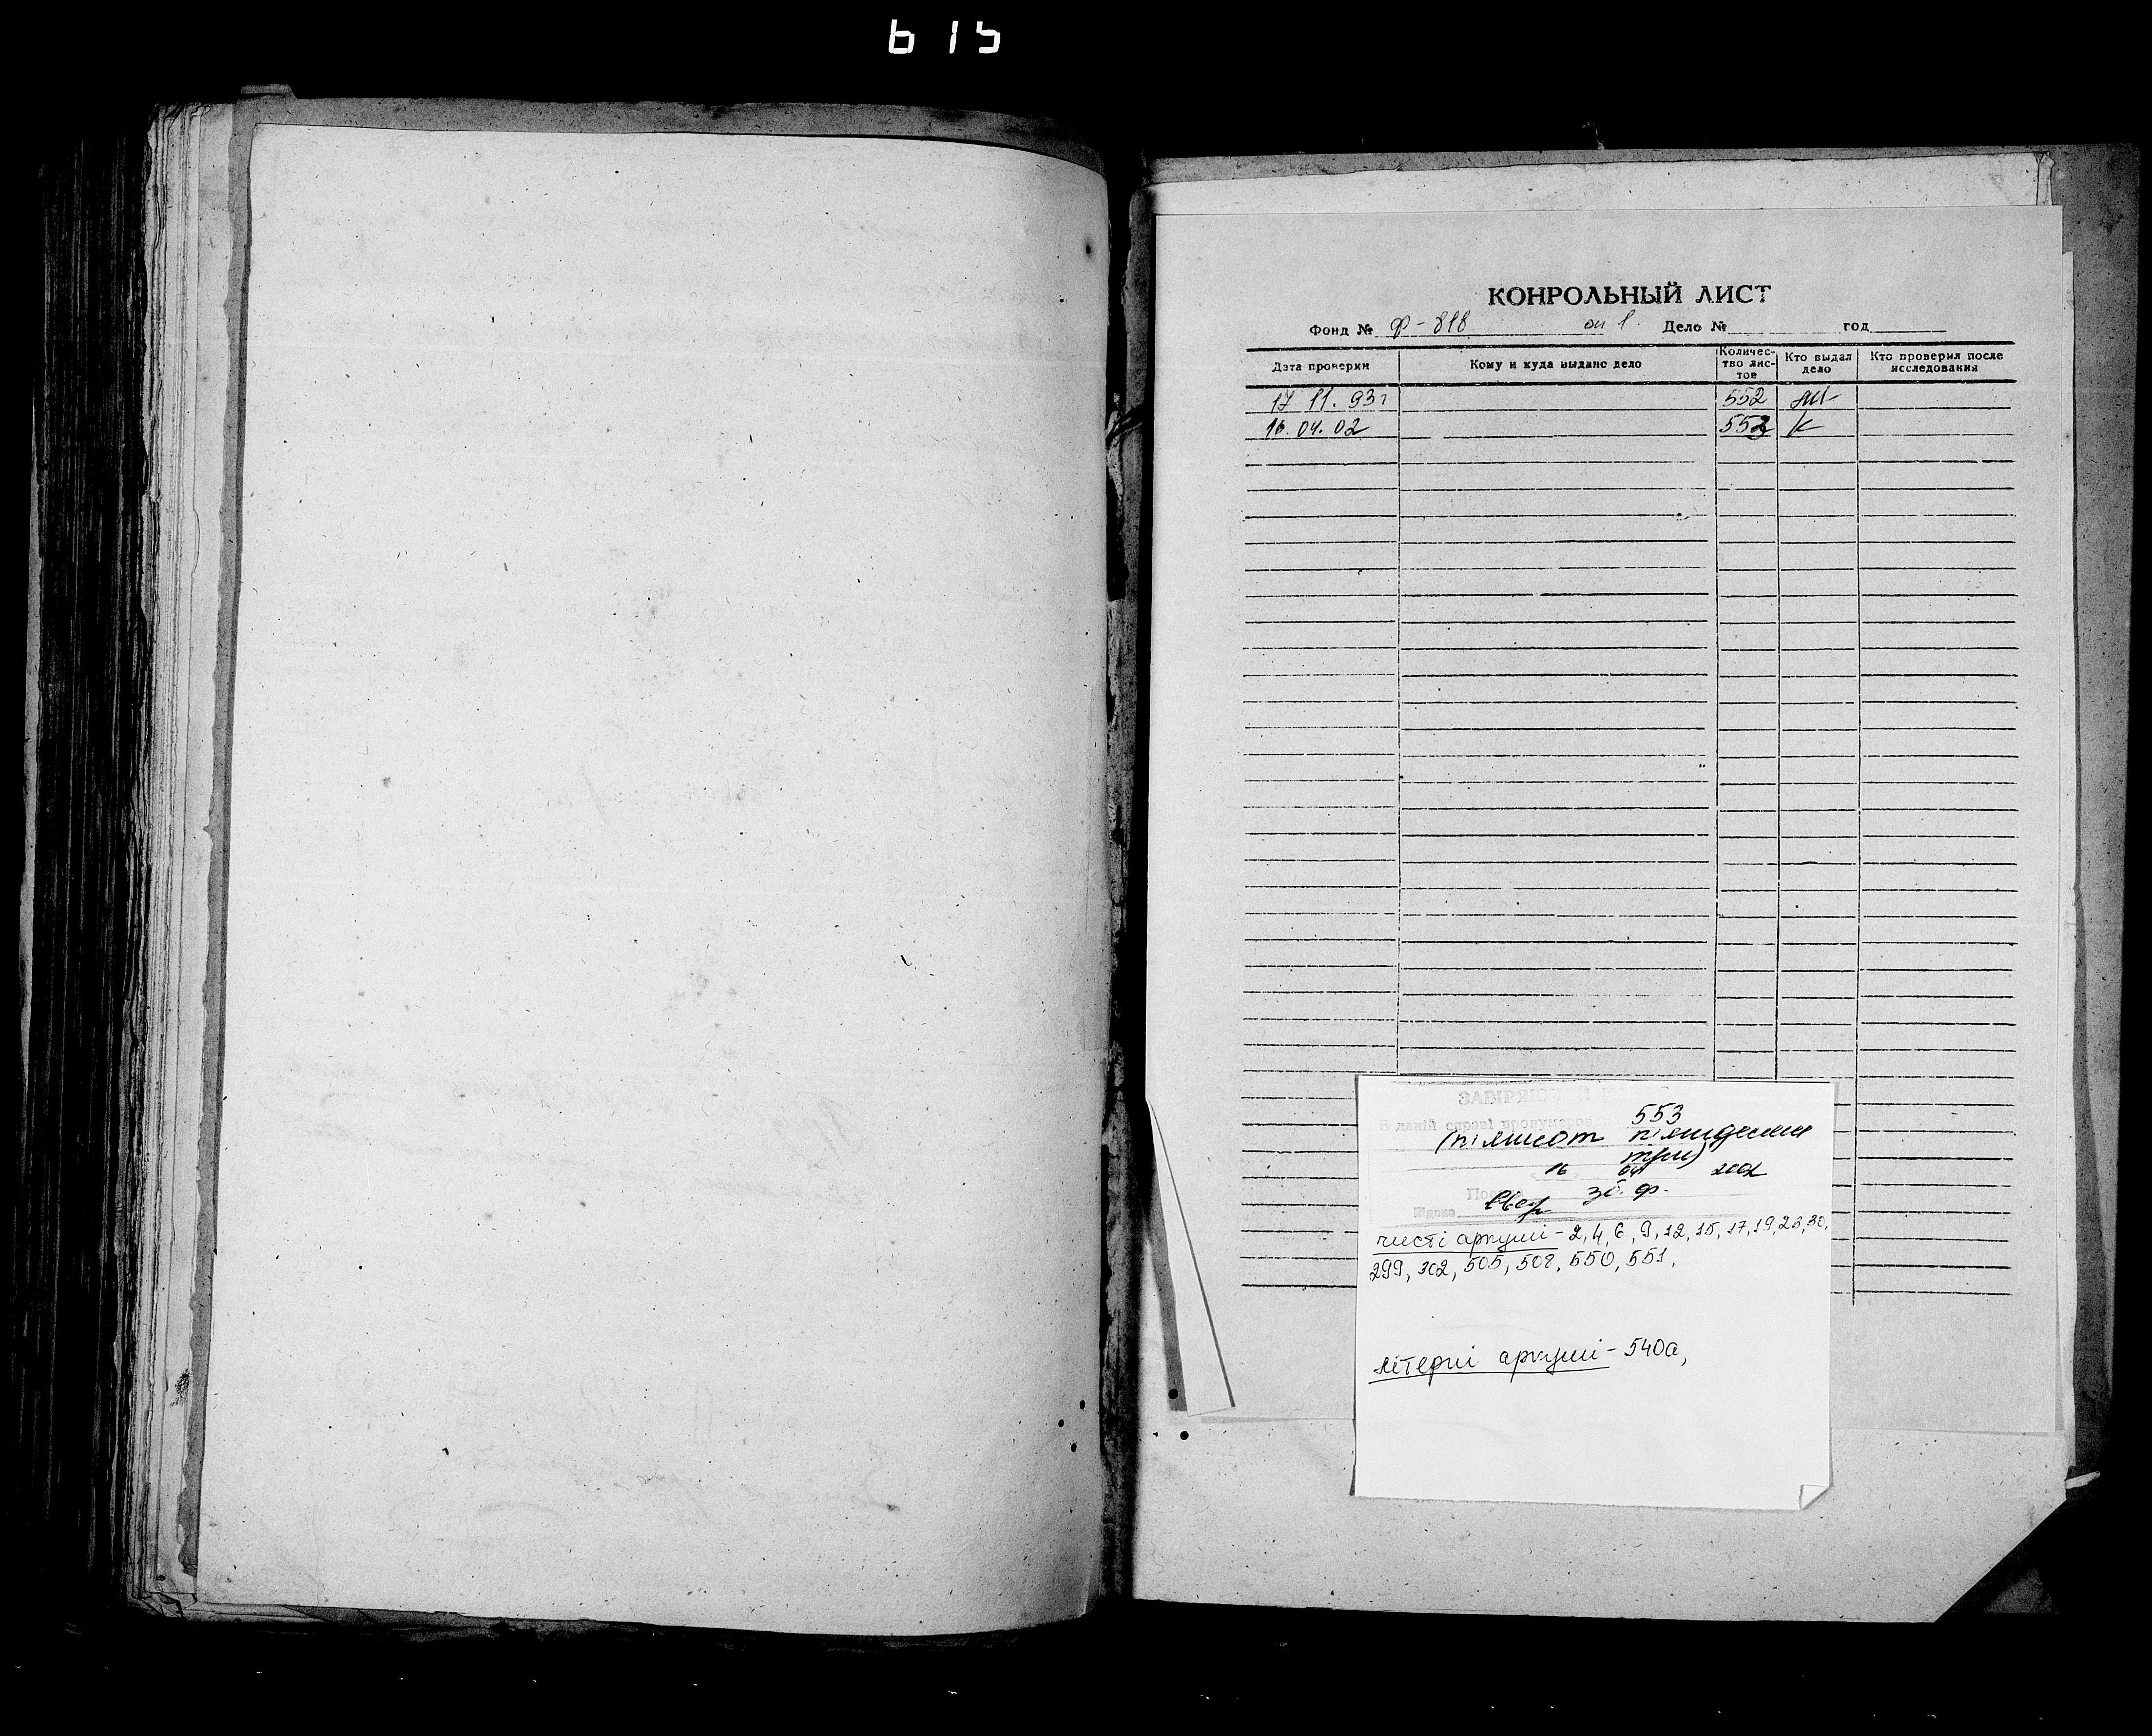 615
КОНРОЛЬНЫЙ ЛИСТ
Фонд № Ф-818 оп 1. Дело № год
Дата проверки Кому и куда выдано дело Количес-тво лис-тов Кто выдал дело Кто проверил после исследования
17 11. 93г 552
16. 04. 02 553
В даній справі пронумеров 553
(пʼятсот пʼятдесят
три)
16 04 2002
зб. ф.
чисті аркуші - 2, 4, 6, 9, 12, 15, 17, 19, 23, 30,
299, 302, 505, 508, 550, 551.
літерні аркуші - 540а,